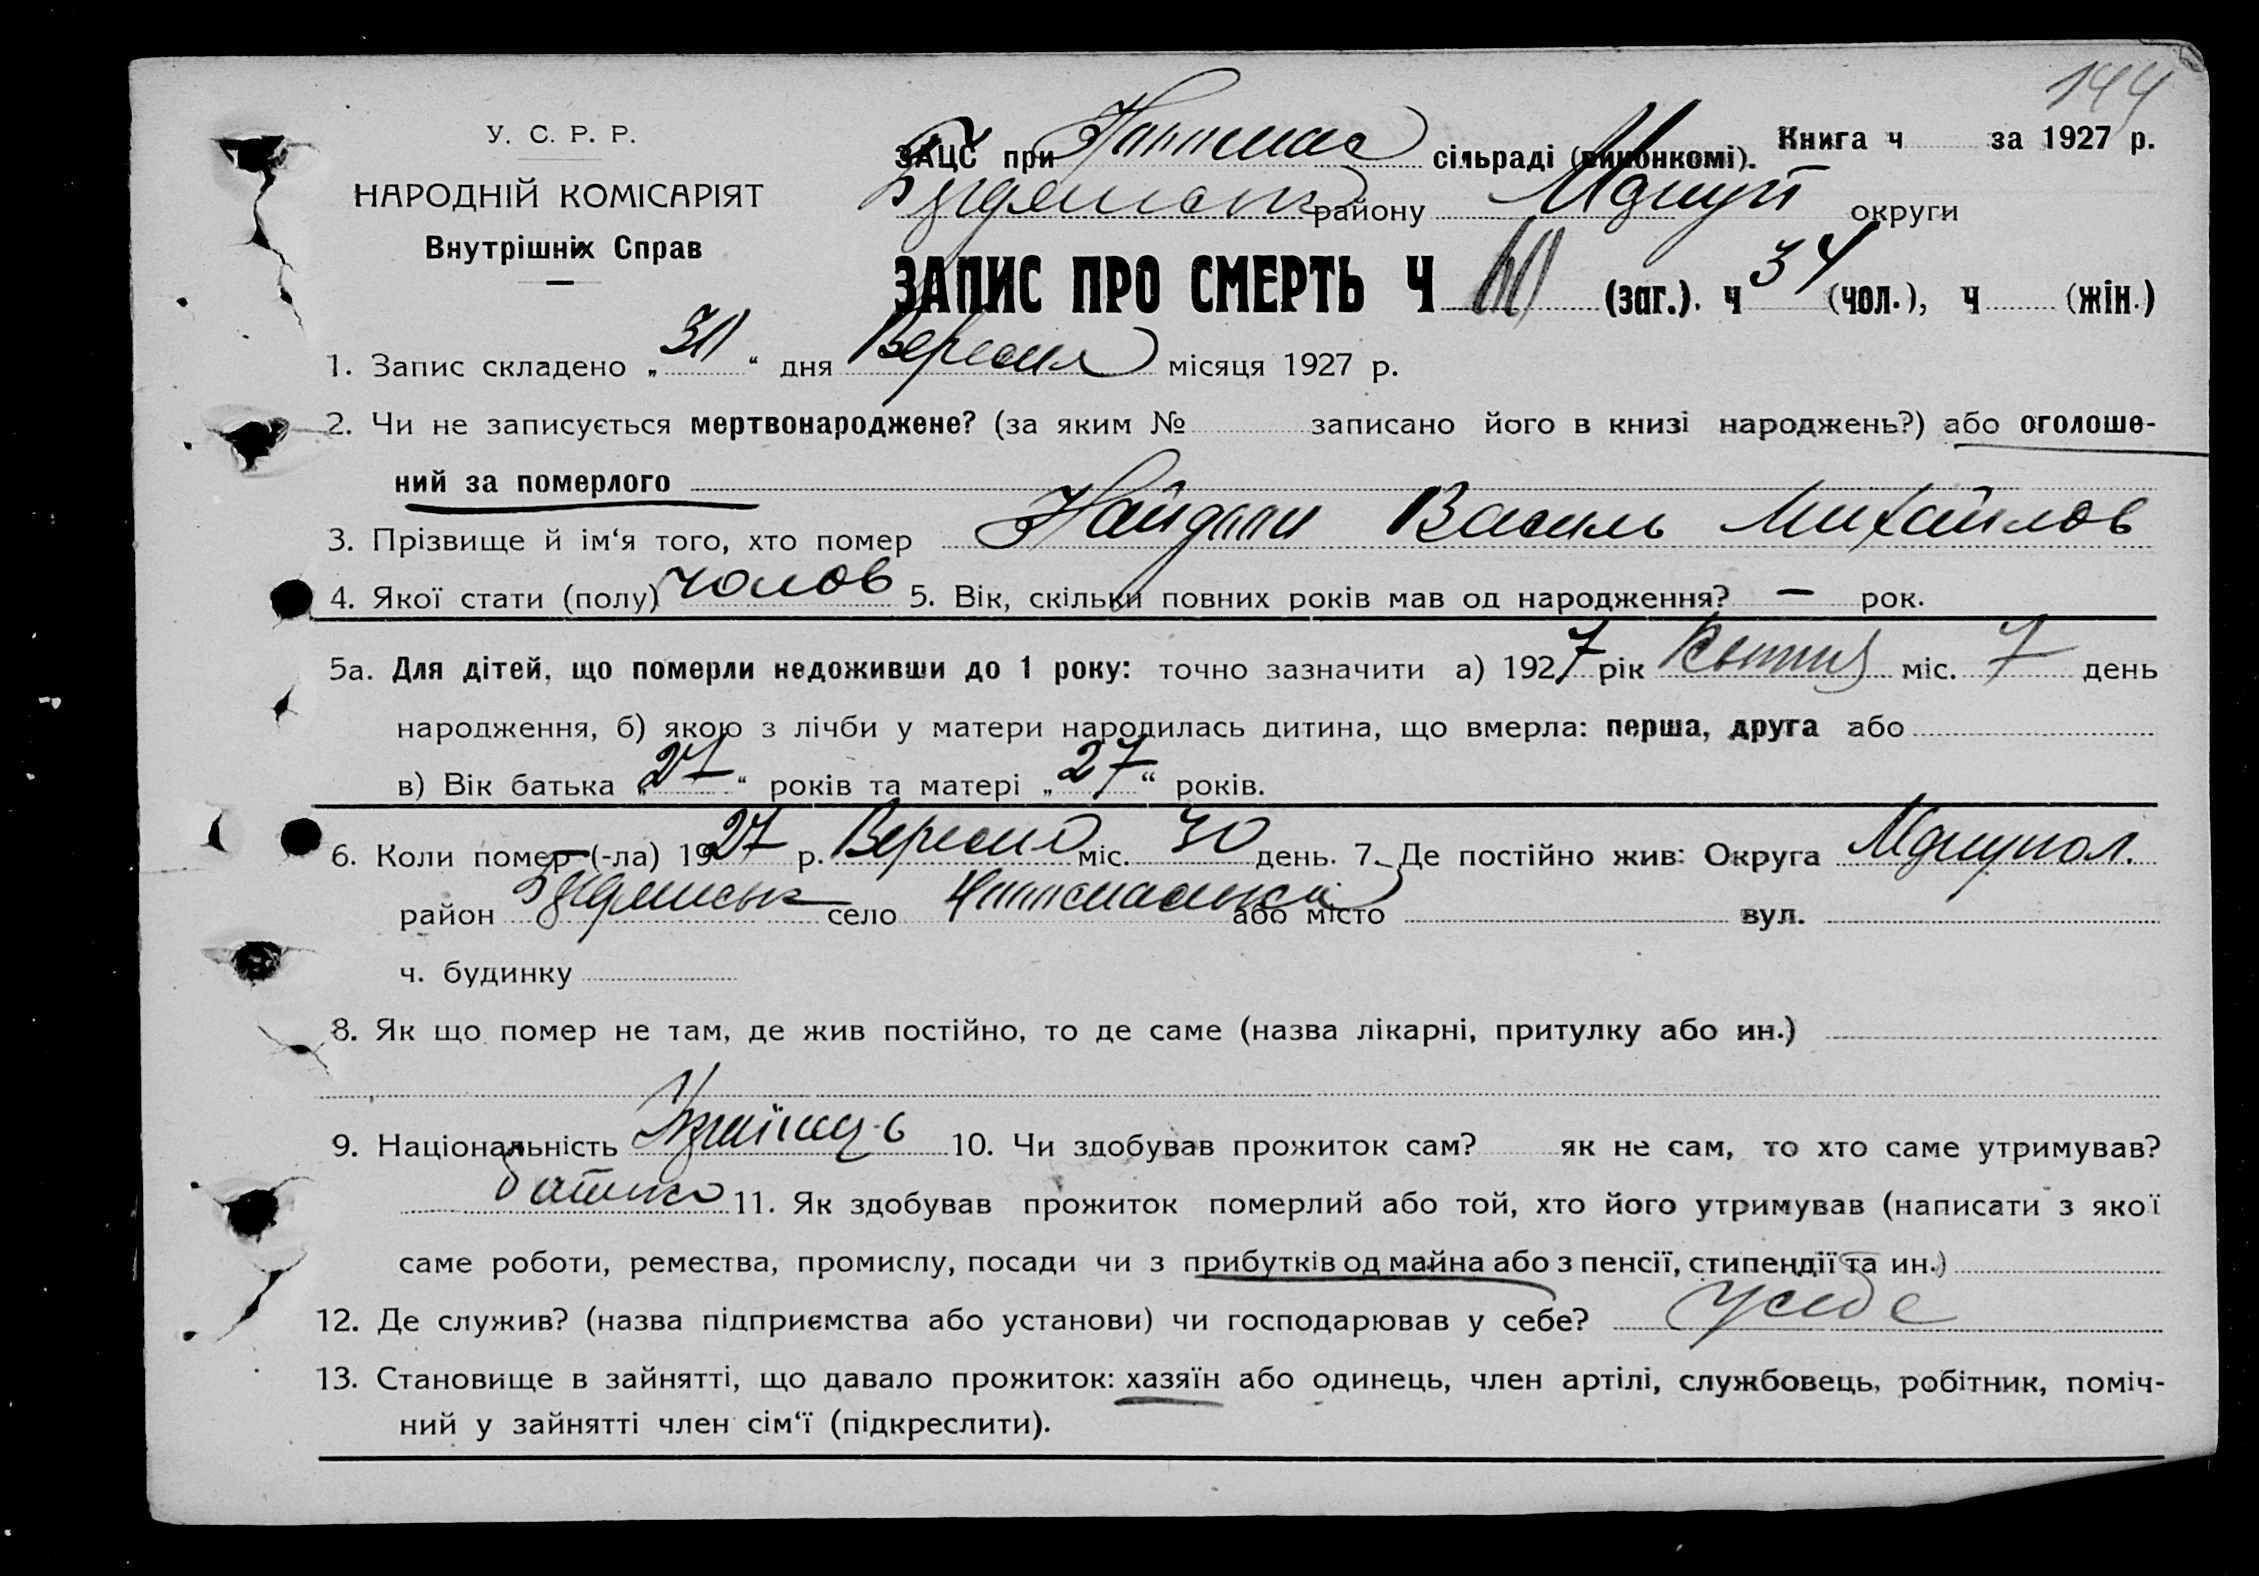 144
У. С. Р. Р.
НАРОДНІЙ КОМІСАРІЯТ
Внутрішніх Справ
Книга ч за 1927 р.
ЗАЦС при сільраді (виконкомі).
району округи
ЗАПИС ПРО СМЕРТЬ Ч (заг.). ч 34 (чол.), ч (жін.)
1. Запис складено „ 30 “ дня Вересня місяця 1927 р.
2. Чи не записується мертвонароджене? (за яким № записано його в книзі народжень?) або оголоше-
ний за померлого
3. Прізвище й ім‘я того, хто помер Найдан Василь Михайлов
4. Якої стати (полу) чолов 5. Вік, скільки повних років мав од народження? — рок.
5а. Для дітей, що померли недоживши до 1 року: точно зазначити а) 1927 рік міс. 7 день
народження, б) якою з лічби у матери народилась дитина, що вмерла: перша, друга або
в) Вік батька „ 27 “ років та матері „ 27 “ років.
6. Коли помер (-ла) 1927 р. Вересня міс. 30 день. 7. Де постійно жив: Округа Мариупол.
район село або місто вул.
ч. будинку
8. Як що помер не там, де жив постійно, то де саме (назва лікарні, притулку або ин.)
9. Національність 10. Чи здобував прожиток сам? як не сам, то хто саме утримував?
батько 11. Як здобував прожиток померлий або той, хто його утримував (написати з якої
саме роботи, ремества, промислу, посади чи з прибутків од майна або з пенсії, стипендії та ин.)
12. Де служив? (назва підприємства або установи) чи господарював у себе? у себе
13. Становище в зайнятті, що давало прожиток: хазяїн або одинець, член артілі, службовець, робітник, поміч-
ний у зайнятті член сім‘ї (підкреслити).